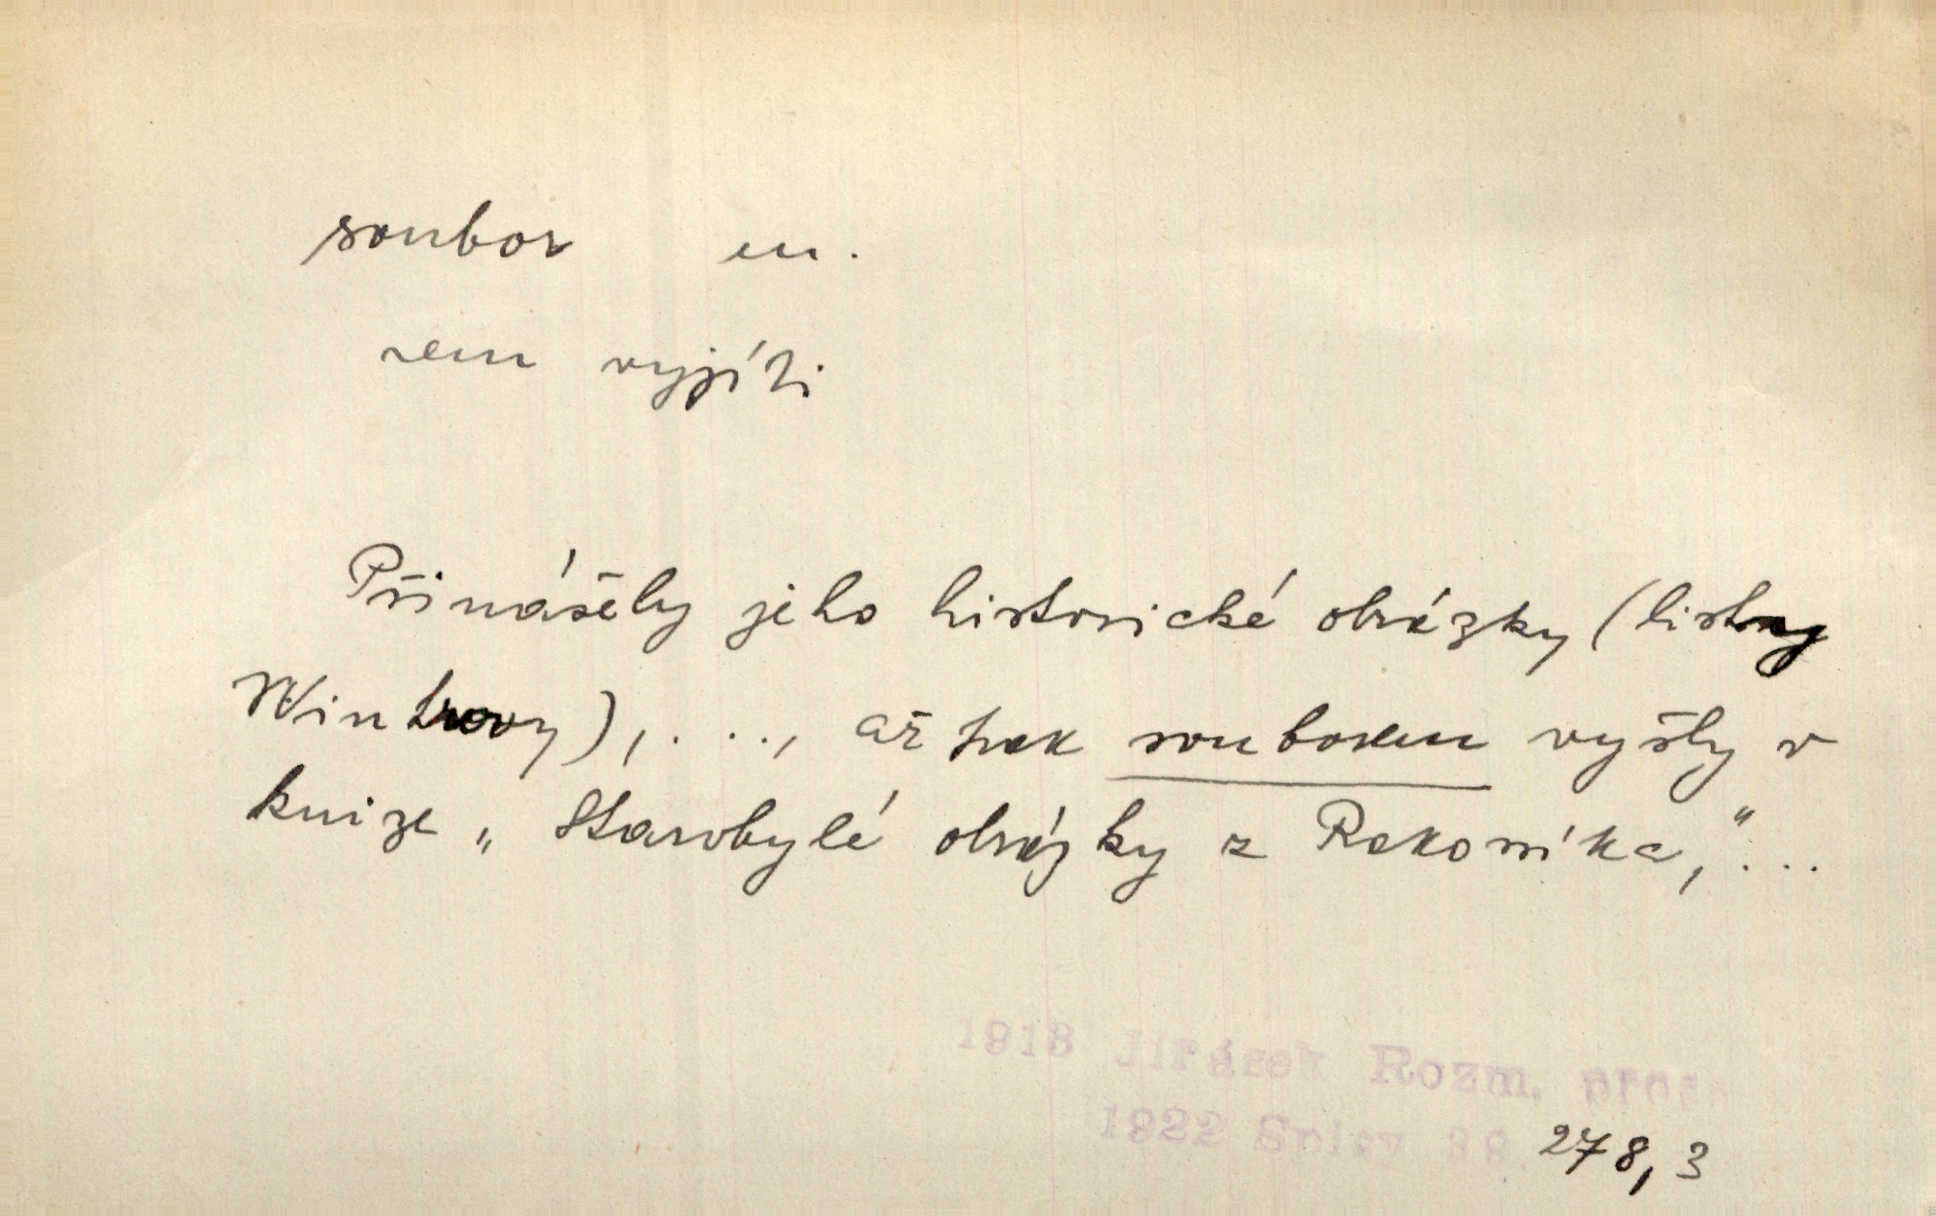 soubor m.
rem vyjíti
Přinášely jeho historické obrázky (listny
Wintrovy),..., až pak souborem vyšly v
knize „Starobylé obrázky z Rakovníka,"...
1918 Jirásek Rozm. prosa
1922 Spisy 38 278,3